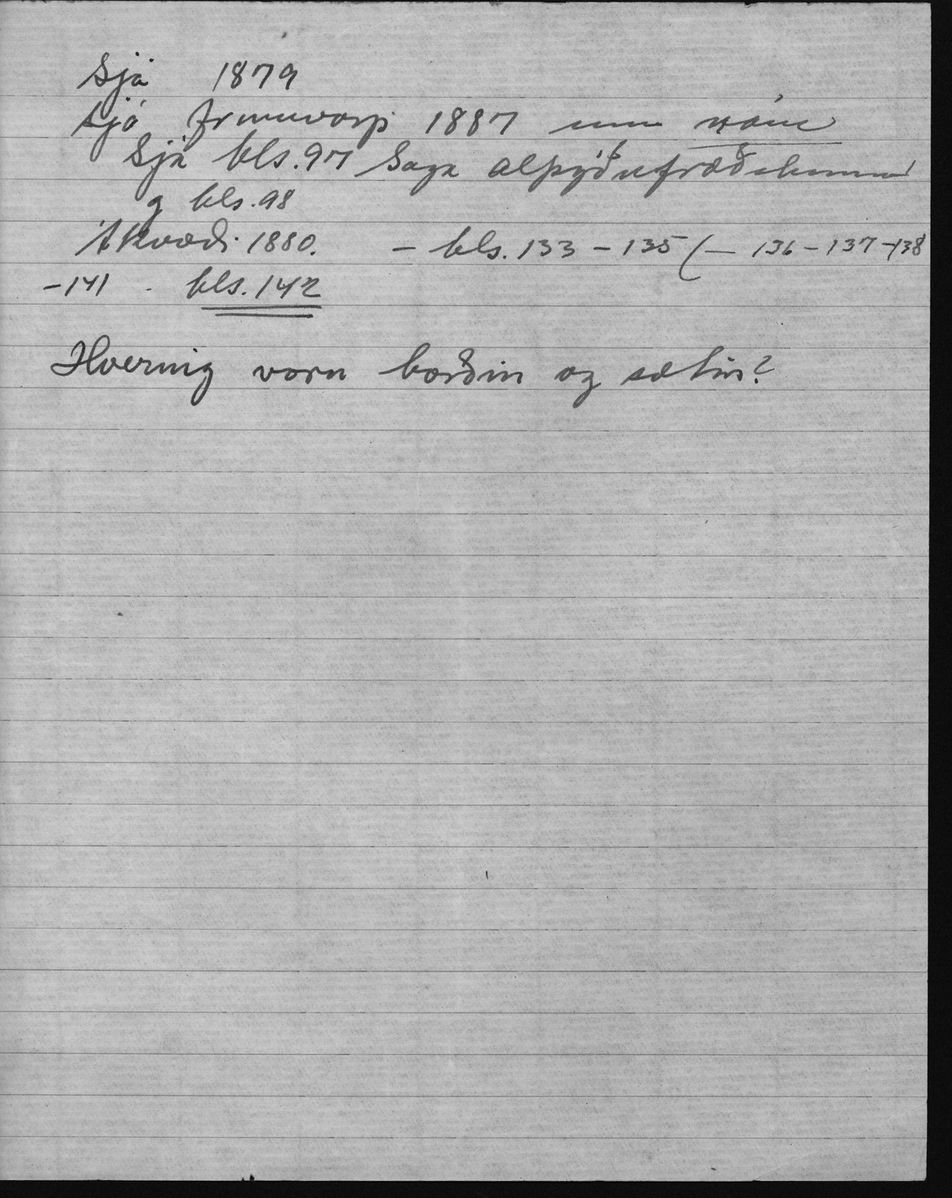 Sjá 1879
Sjá frumvarp 1887 um nám
Sjá bls. 97 Saga alþýðufræðslunnar
og bls. 98
Ákvæði 1880. - bls. 133 - 135 (- 136 - 137 - 138
- 141 - bls. 142
Hvernig voru borðin og sætin?